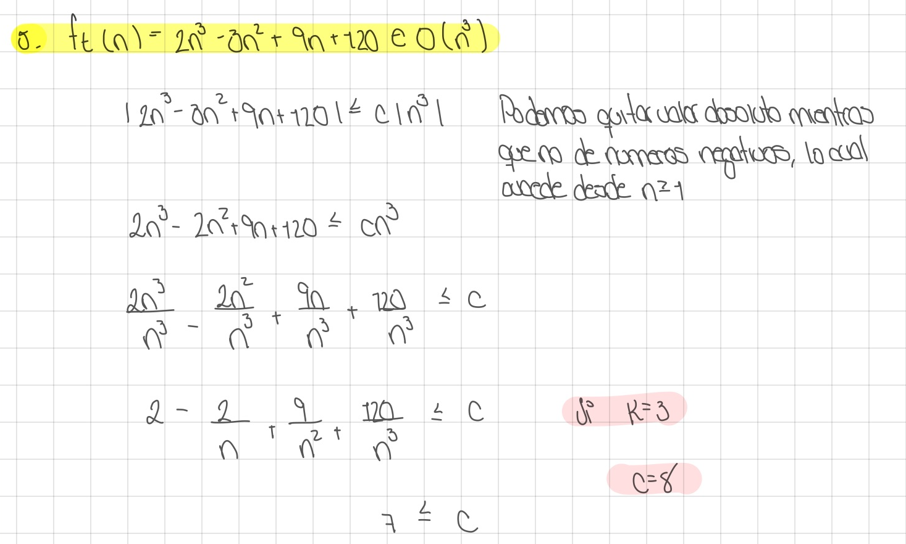 5. ft(n) = 2n³ - 3n² + 9n + 120 ∈ O(n³)
|2n³ - 3n² + 9n + 120| ≤ C|n³|
Podemos quitar valor absoluto mientras
que no de números negativos, lo cual
sucede desde n=1
2n³ - 2n² + 9n + 120 ≤ Cn³
2n³/n³ - 2n²/n³ + 9n/n³ + 120/n³ ≤ C
2 - 2/n + 9/n² + 120/n³ ≤ C
Si K=3
C=8
7 ≤ C